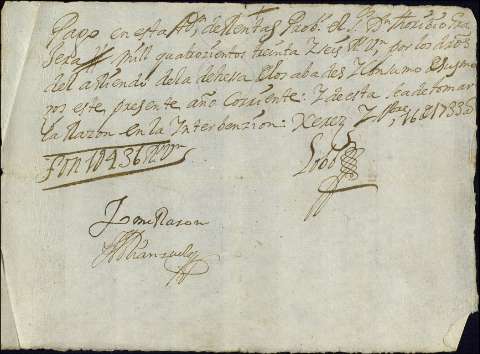 Pago en esta de Rentas Prob. el S. Dn Thoribio
Sera mill quatrosientos treinta y seis Rs Vn por los dros
del arriendo de la dehessa Elos abades y Consumo
por este presente año Corriente: y de esta sea de tomar
la Razon en la Interbenzion: Xerez y 16 de 1733
Son 1U436 Rs Vn
Lobo
Tome Razon